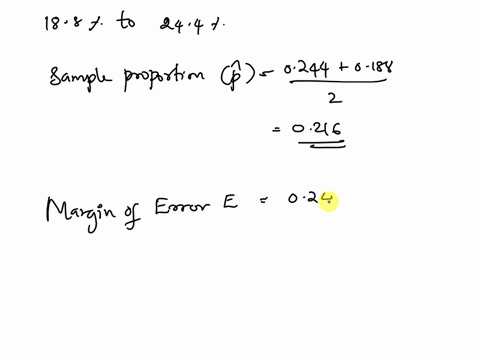 18.8% to 24.4%.
Sample proportion (p̂) = 0.244 + 0.188
2
= 0.216
Margin of Error E = 0.24